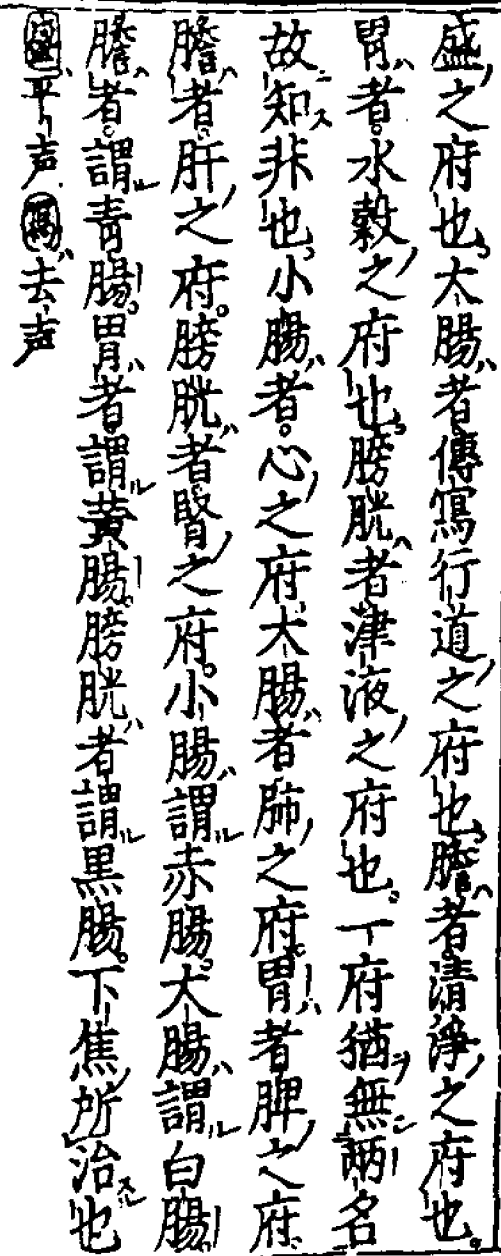 盛之府也大腸者傳寫行道之府也膽者清淨之府也
胃者水穀之府也膀胱者津液之府也一府猶無兩名
故知非也小腸者心之府大腸者肺之府胃者脾之府
膽者肝之府膀胱者腎之府小腸謂赤腸大腸謂白腸
膽者謂青腸胃者謂黄腸膀胱者謂黒腸下焦所治也
盛平声寫去声